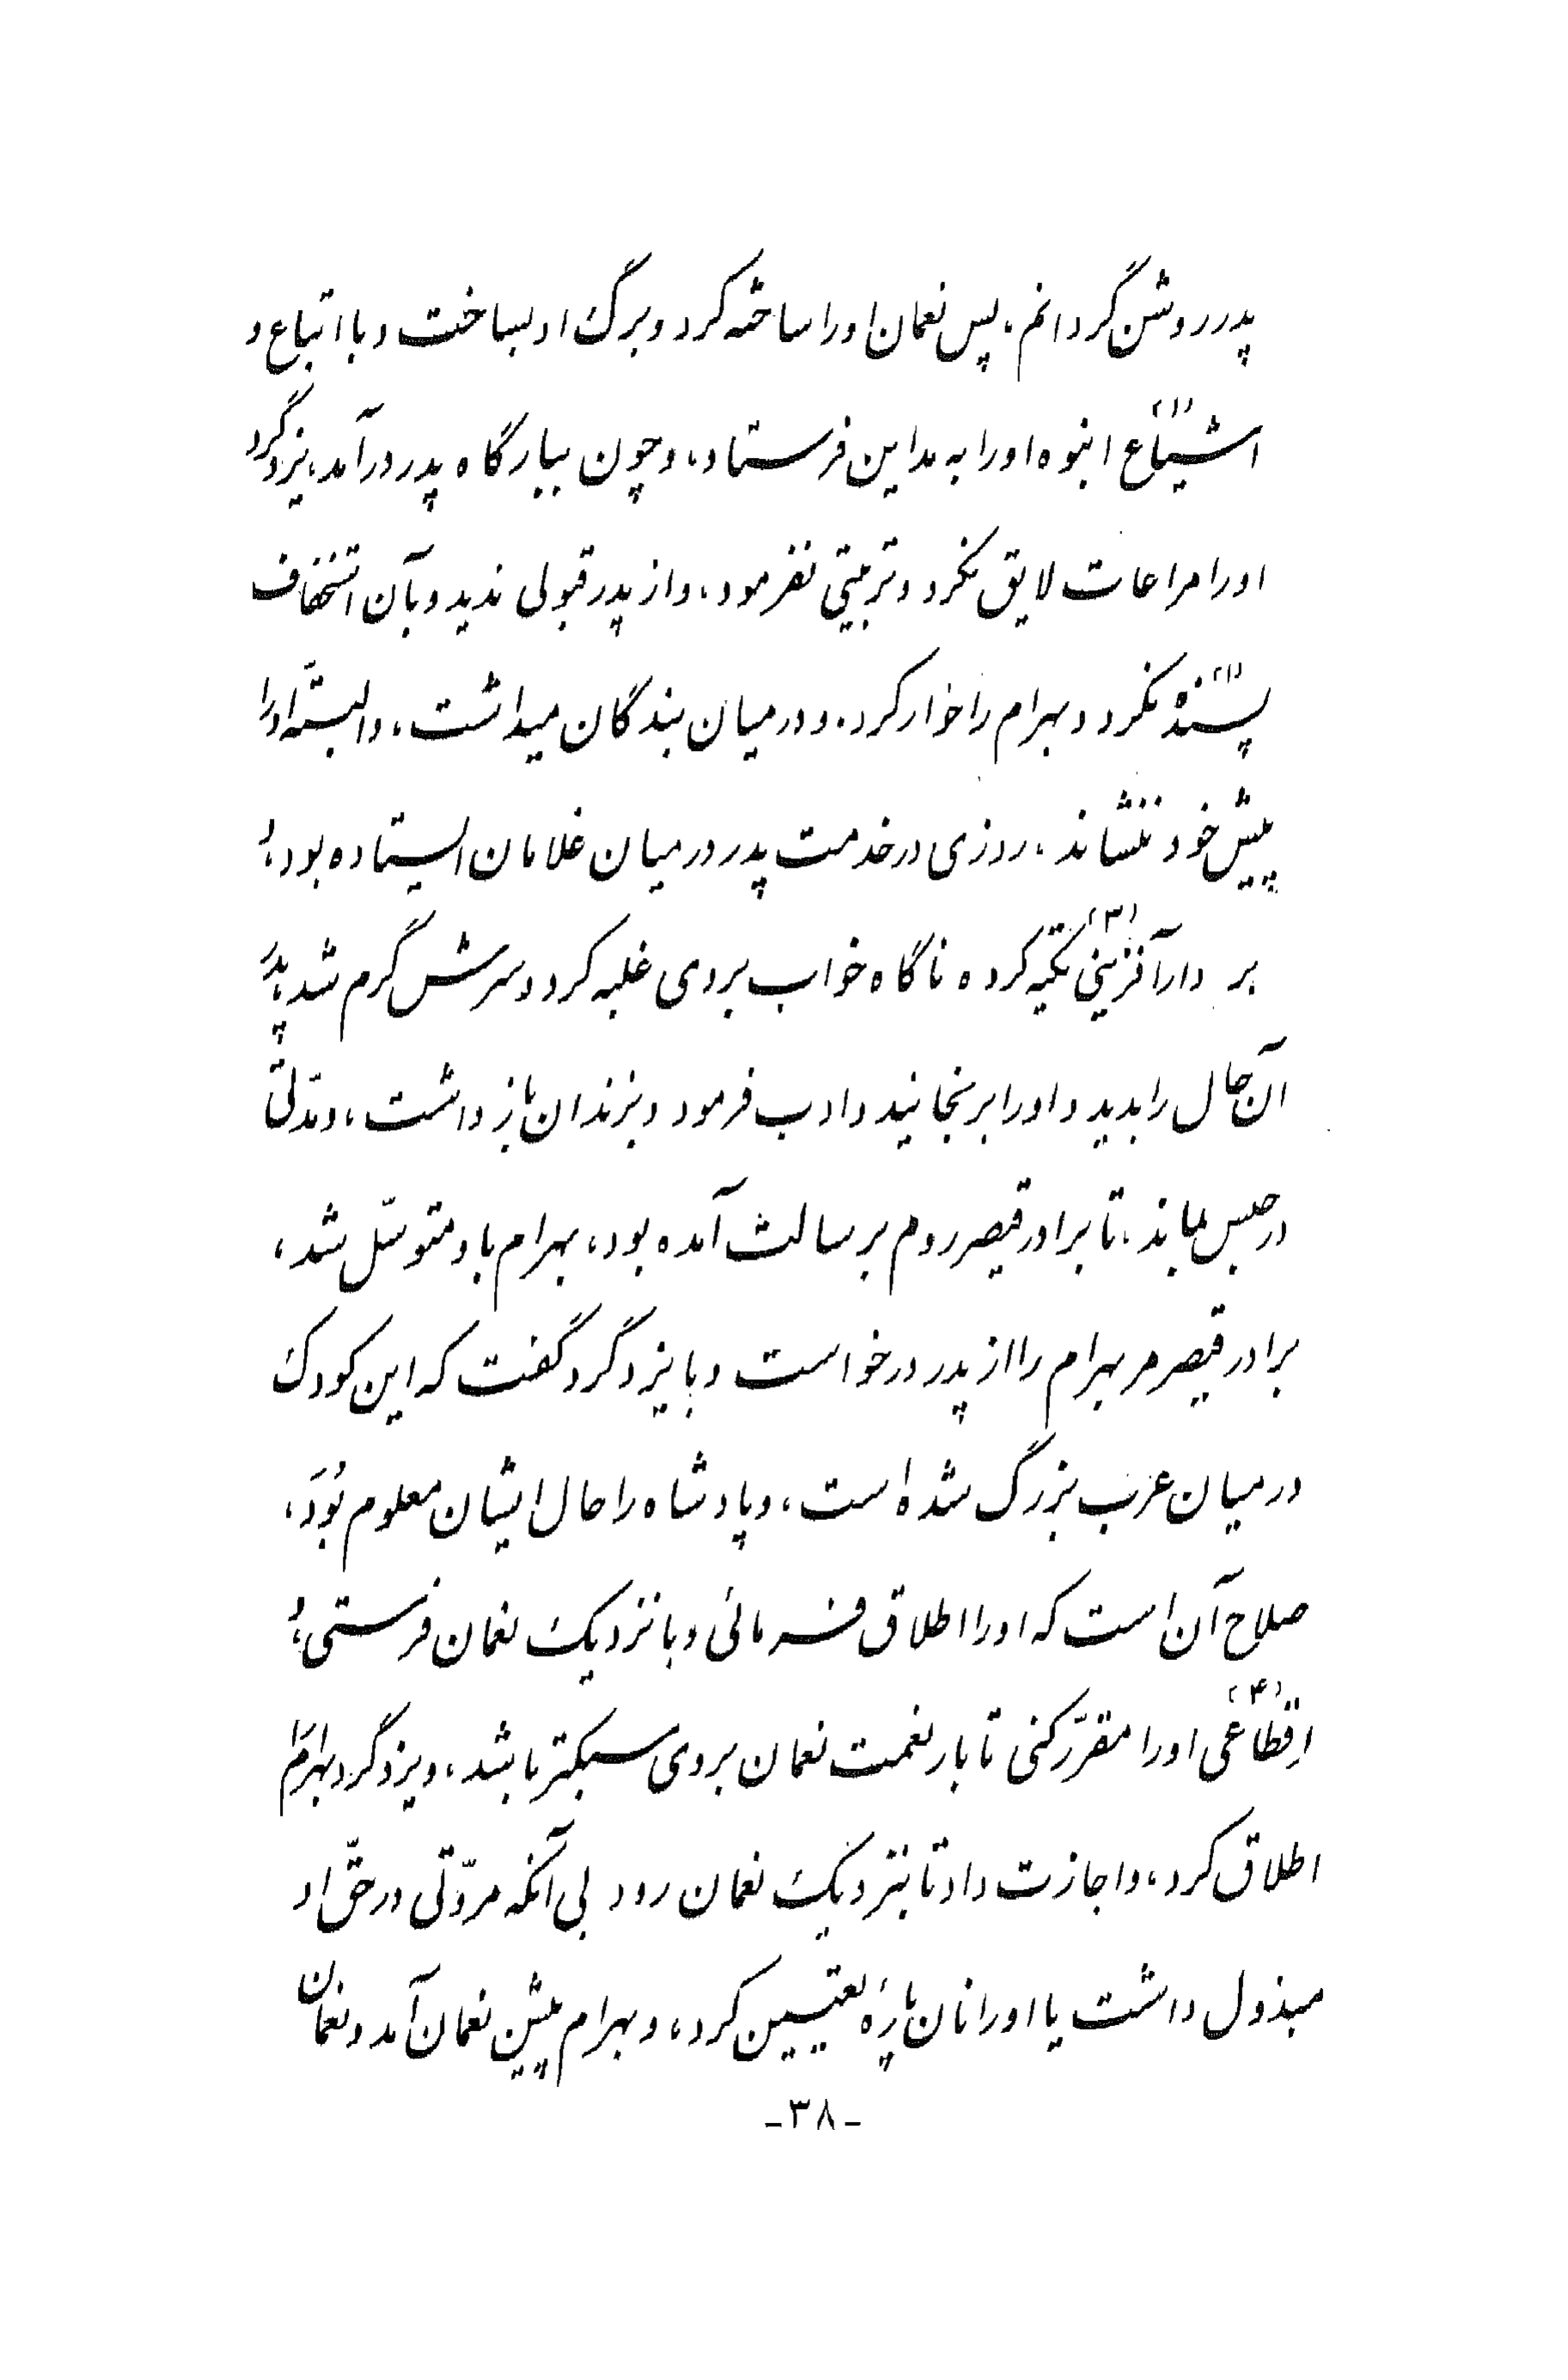 پدر روشن گردانم، پس نعمان او را ساخته کرد و برگ او بساخت و با اتباع و
اشیاع(۱) انبوه او را به مداین فرستاد، و چون ببارگاه پدر درآمد، یزدگرد
او را مراعات لایق نکرد و تربیتی نفرمود، و از پدر قبولی ندید و بآن استخفاف
پسنده(۲) نکرد و بهرام را خوار کرد. و در میان بندگان میداشت، و البتّه او را
پیش خود ننشاند، روزی در خدمت پدر در میان غلامان ایستاده بود، و
بر دارآفزینی(۳) تکیه کرده ناگاه خواب بروی غلبه کرد و سرش گرم شد، پدر
آن حال را بدید و او را برنجانید و ادب فرمود و بزندان باز داشت، و مدّتی
در حبس بماند، تا برادر قیصر روم برسالت آمده بود، بهرام باو متوسّل شد،
برادر قیصر مر بهرام را از پدر درخواست و با یزدگرد گفت که این کودک
در میان عرب بزرگ شده است، و پادشاه را حال ایشان معلوم بُوَد،
صلاح آن است که او را اطلاق فرمائی و با نزدیک نعمان فرستی، و
اِقطاعی(۴) او را مقرّر کنی تا بار نعمت نعمان بروی سبکتر باشد، و یزدگرد بهرام را
اطلاق کرد، و اجازت داد تا بنزدیک نعمان رود بی آنکه مروّتی در حقّ او
مبذول داشت یا او را نان پارهٔ تعیین کرد، و بهرام پیش نعمان آمد و نعمان
-۳۸-